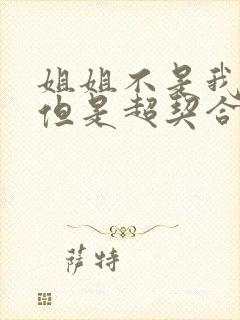 姐姐不是我
但是超契合
萨特